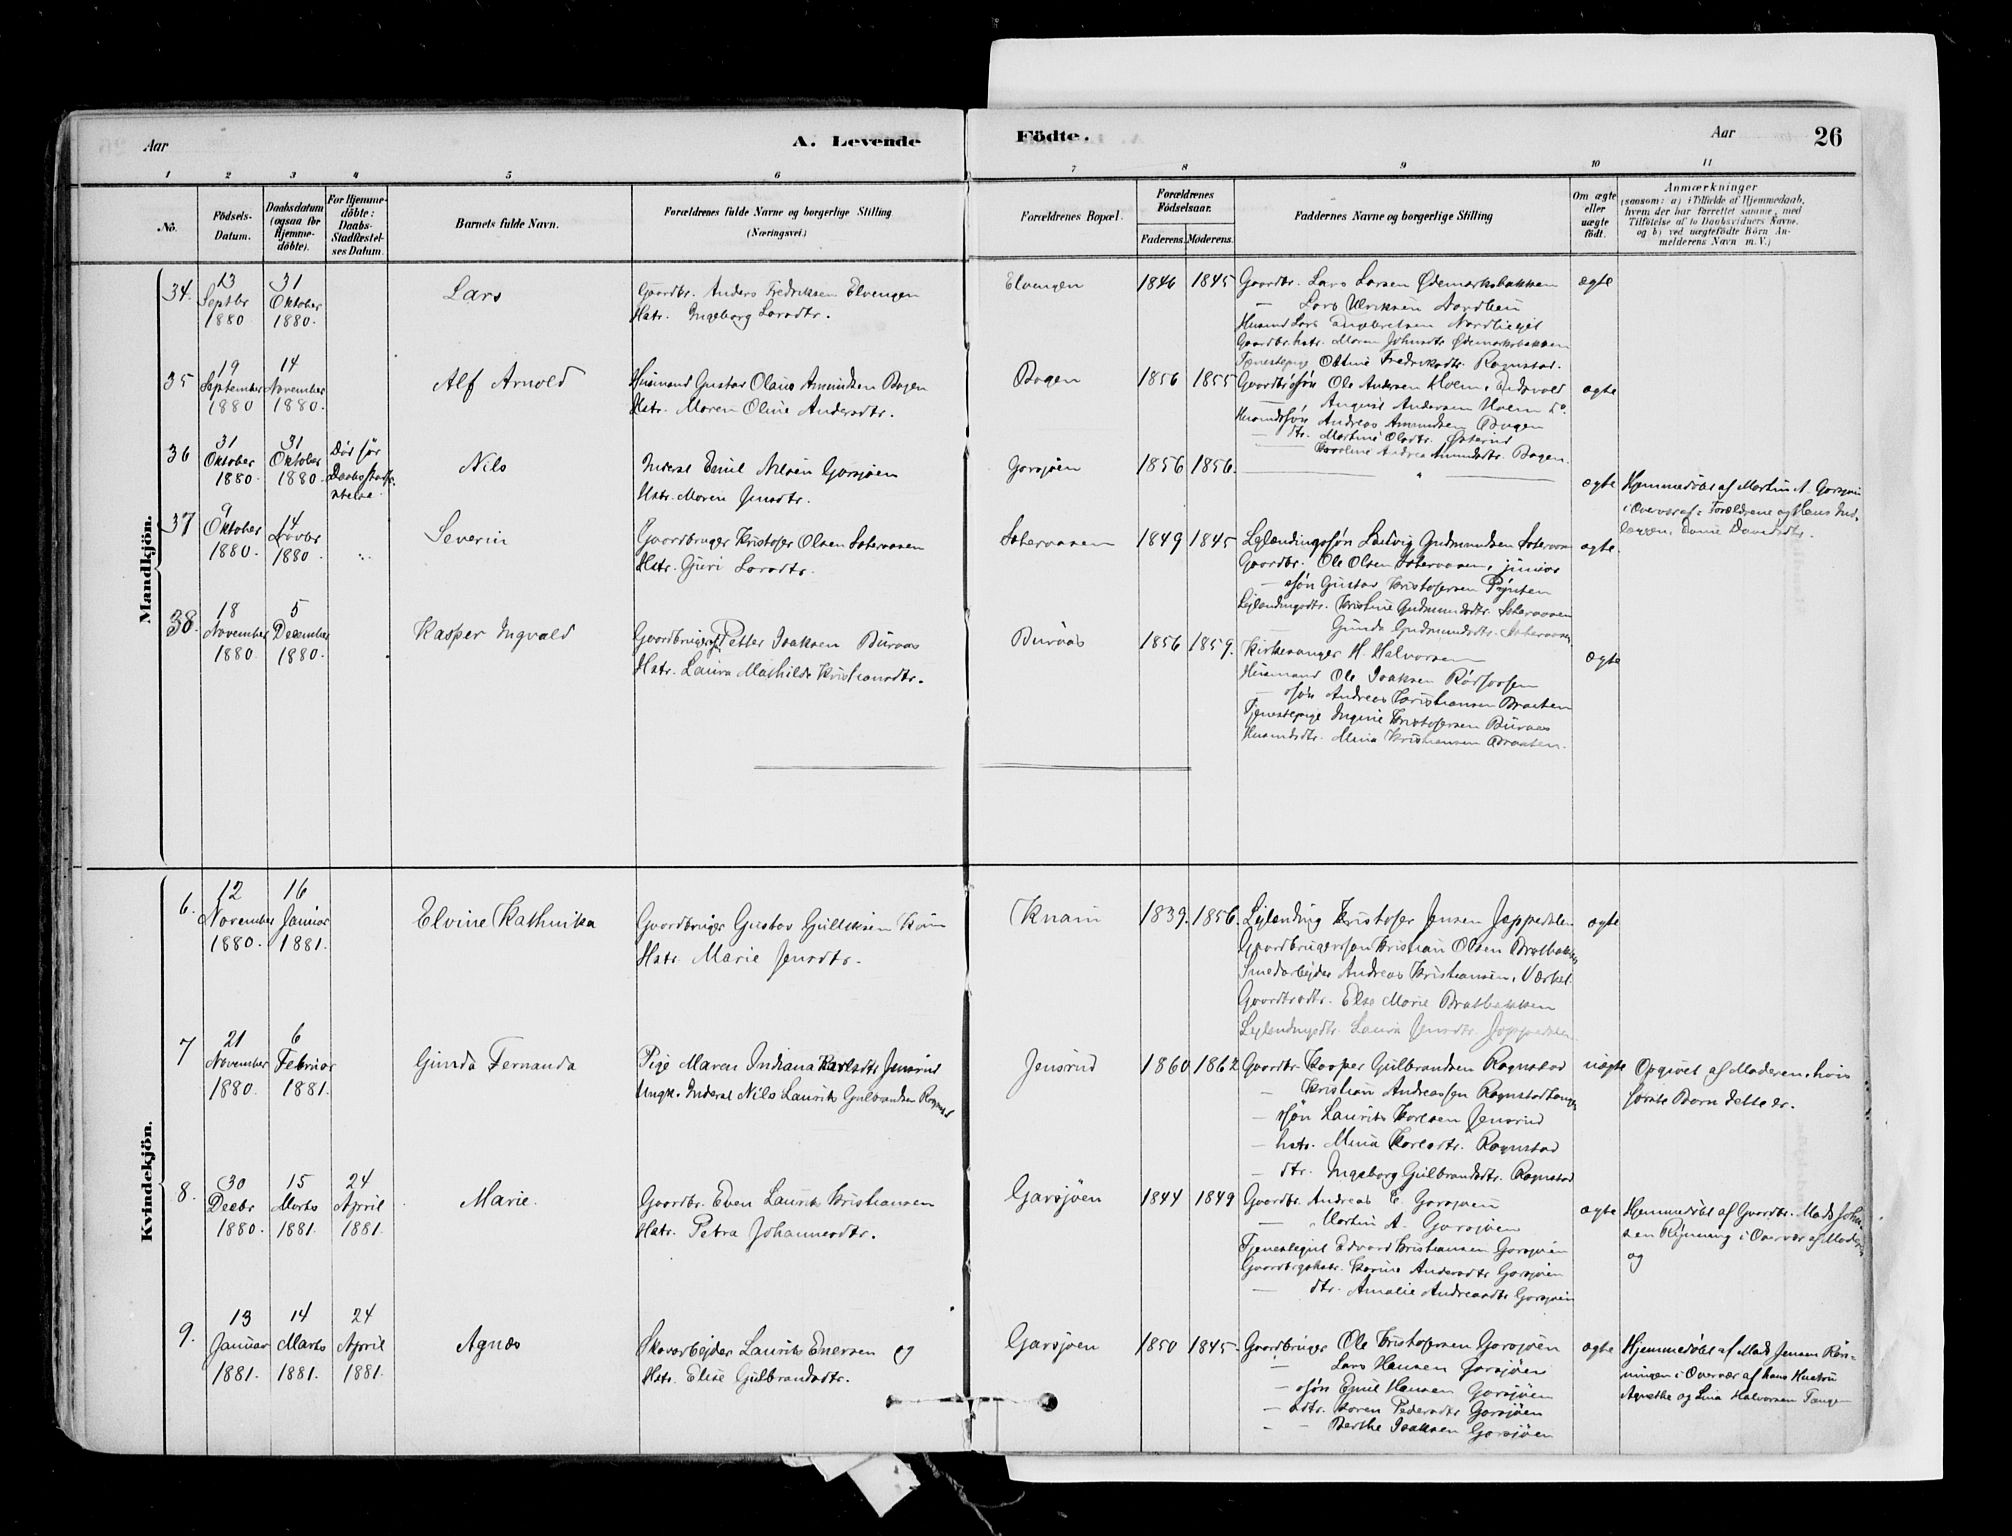 Aar
A. Levende
Födte.
Aar
26
1 2 3 4 5 6 7 8 9 10 11
No.
Födsels-Datum.
Daabsdatum (ogsaa for Hjemme-döbte).
For Hjemme-döbte: Daabs-Stadfæstel-ses Datum.
Barnets fulde Navn.
Forældrenes fulde Navne og borgerlige Stilling
(Næringsvei.)
Forældrenes Bopæl.
Forældrenes Födselsaar.
Faderens. Moderens.
Faddernes Navne og borgerlige Stilling
Om ægte eller uægte födt.
Anmærkninger
(saasom: a) i Tilfælde af Hjemmedaab, hvem der har forrettet samme, med Tilföielse af to Daabsvidners Navne, og b) ved uægtefödte Börn An-melderens Navn m. V.)
Mandkjön.
34. 13 Septbr 1880 31 Oktober 1880. Lars
Gaardbr. Anders Fredriksen Elvengen
Hstr. Ingeborg Larsdtr.
Elvengen 1846 1845
Gaardbr. Lars Larsen Ødemarksbakken
— Lars Ulriksen
Husmand Lars
Gaardbr. hstr. Maren Ødemarksbakken
Tjenestepige Fredriksdtr. Rognstad.
ægte
35 19 September 1880 14 November 1880. Alf Arnold
Husmand Gustav Olaus Amundsen Bogen
Hstr. Maren Oline Andersdtr.
Bogen 1856 1855
Gaardbrsøn Ole Andersen Holm,
— August Andersen Holm do.
Husmdssøn Andreas Amundsen Bogen
— dtr. Martine Olsdtr. Østerud
Karoline Andrea Amundsdtr. Bogen
ægte
36 31 Oktober 1880 31 Oktober 1880 Død før Daabsstadf. Nils
Inderst Emil Nilsen Garsjøen
Hstr. Maren Jensdtr.
Garsjøen 1856 1856.
— " —
ægte
Hjemmedøbt af Martin A. Garsjøen
i Overvær af: Forældrene og Hans
37 9 Oktober 1880. 14 Novbr 1880 Severin
Gaardbruger Kristofer Olsen Setervasen
Hstr. Gjeri Larsdtr.
1849 1845
Leilendingssøn Ludvig Gudmundsen
Gaardbr. Ole Olsen junior
— søn Gustav Kristofersen
Leilendingsdtr. Kristine Gudmundsdtr.
Gunda Gudmundsdtr.
ægte
38. 18 November 1880 5 December 1880. Kasper Ingvald
Gaardbruger Petter Isaksen Buraas
Hstr. Laura Mathilde Kristiansdtr.
Buraas 1856 1859.
Kirkesanger H. Halvorsen
Husmand Ole Isaksen
— søn Andreas Kristiansen Braaten
Tjenestepige Ingine Kristofersen Buraas
Husmdsdtr. Mina Kristiansen Braaten.
ægte
Kvindekjön.
6. 12 November 1880. 16 Januar 1881. Elvine Kathinka
Gaardbruger Gustav Gulliksen
Hstr. Marie Jensdtr.
Knain 1839. 1856.
Leilending Kristofer Jensen
Gaardbrugerssøn Kristian Olsen Bratbakken
Smedarbejder Andreas Kristiansen, Værket.
Gaardbrsdtr. Else Marie Bratbakken
Leilendingsdtr. Laura Jensdtr.
ægte
7 21 November 1880. 6 Februar 1881. Gunda Fernanda
Pige Maren Indiana Karlsdtr. Jensrud
Ungk. Inderst Nils Laurits Gulbrandsen Rognstad
Jensrud 1860 1862
Gaardbr. Kasper Gulbrandsen Rognstad
— Kristian Andreassen
— søn Laurits Karlsen Jensrud
— hstr. Mina Karlsdtr. Rognstad
— dtr. Ingeborg Gulbrandsdtr. Rognstad
uægte
Opgivet af Moderen, hvis
første Barn dette er.
8. 30 Decbr 1880. 15 Marts 1881. 24 April 1881. Marie.
Gaardbr. Even Laurits Kristiansen
Hstr. Petra Johannesdtr.
Garsjøen 1844 1849
Gaardbr. Andreas E. Garsjøen
— Martin A. Garsjøen
Tjenestegut Edvard Kristiansen Garsjøen
Gaardbrgshstr. Karine Andersdtr. Garsjøen
— dtr. Amalie Andreasdtr. Garsjøen
ægte
Hjemmedøbt af Gaardbr. Mads
i Overvær af Moderen
og
9. 13 Januar 1881. 14 Marts 1881. 24 April 1881. Agnes
Skovarbejder Laurits Enersen og
Hstr. Elise Gulbrandsdtr.
Garsjøen 1850 1845.
Gaardbruger Ole Kristofersen Garsjøen
— Lars Hansen Garsjøen
— søn Emil Hansen Garsjøen
— dtr. Karen Pedersdtr. Garsjøen
— — Berthe Isaksen Garsjøen
ægte
Hjemmedøbt af Mads Jensen
i Overvær af hans Hustru
Agnethe og Lina Halvorsen